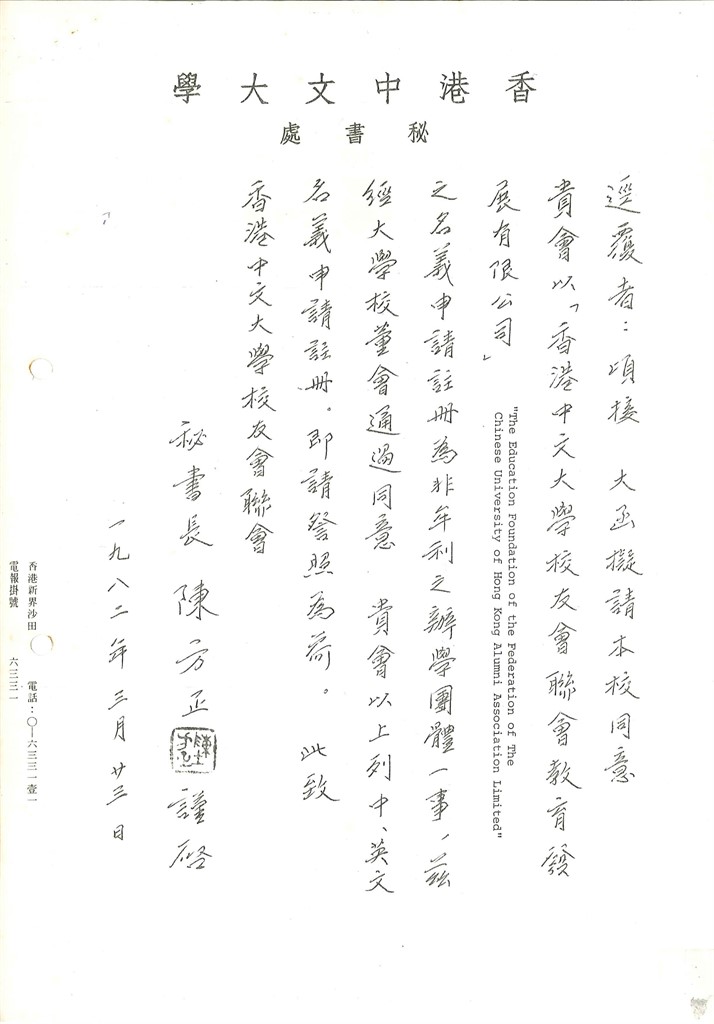 香港中文大學
秘書處
逕覆者：頃接　大函擬請本校同意
貴會以「香港中文大學校友會聯會教育發
展有限公司」
"The Education Foundation of the Federation of The
Chinese University of Hong Kong Alumni Association Limited"
之名義申請註冊為非牟利之辦學團體一事、茲
經大學校董會通過同意　貴會以上列中、英文
名義申請註冊。即請詧照為荷。　此致
香港中文大學校友會聯會
秘書長　陳方正　謹啓
一九八二年三月廿三日
香港新界沙田　電話：〇—六三三一壹一
電報掛號　六三三一